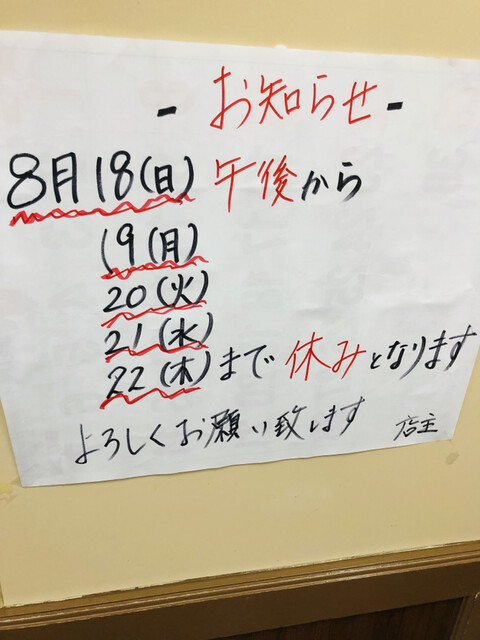 - お知らせ -
8月18(日) 午後から
19(月)
20(火)
21(水)
22(木)まで 休みとなります
よろしくお願い致します 店主